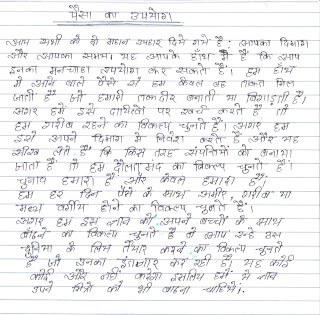 पैसा का उपयोग
आप सभी को दो महान उपहार दिये गये है: आपका दिमाग
और आपका समय। यह आपके हाँथ में है कि आप
इनका मनचाहा उपयोग कर सकते हैं। हम हाँथ
में आने वाले पैसे से हम केवल वह ताकत मिल
जाती है जो हमारी तकदीर बनाती या बिगाड़ती है।
अगर हम इसे दायित्वों पर खर्च करते है तो
हम गरीब रहने का विकल्प चुनते हैं। अगर हम
इसे अपने दिमाग में निवेश करते है और यह
सीख लेते है कि किस तरह संपत्तियों को बनाया
जाता है तो हम दौलतमंद का विकल्प चुनते है।
चुनाव हमारा है और केवल हमारा है।
हम हर दिन पैसे के साथ अमीर, गरीब या
मध्यम वर्गीय होने का विकल्प चुनते है।
अगर हम इस ज्ञान को अपने बच्चों के साथ
बाँटने का विकल्प चुनते है तो आप उन्हें उस
दुनिया के लिये तैयार करने का विकल्प चुनते
है जो उनका इंतजार कर रही है। यह कोई
और नहीं करेगा इसलिये हमें ये ज्ञान
अपने मित्रो को भी बाटना चाहिये।